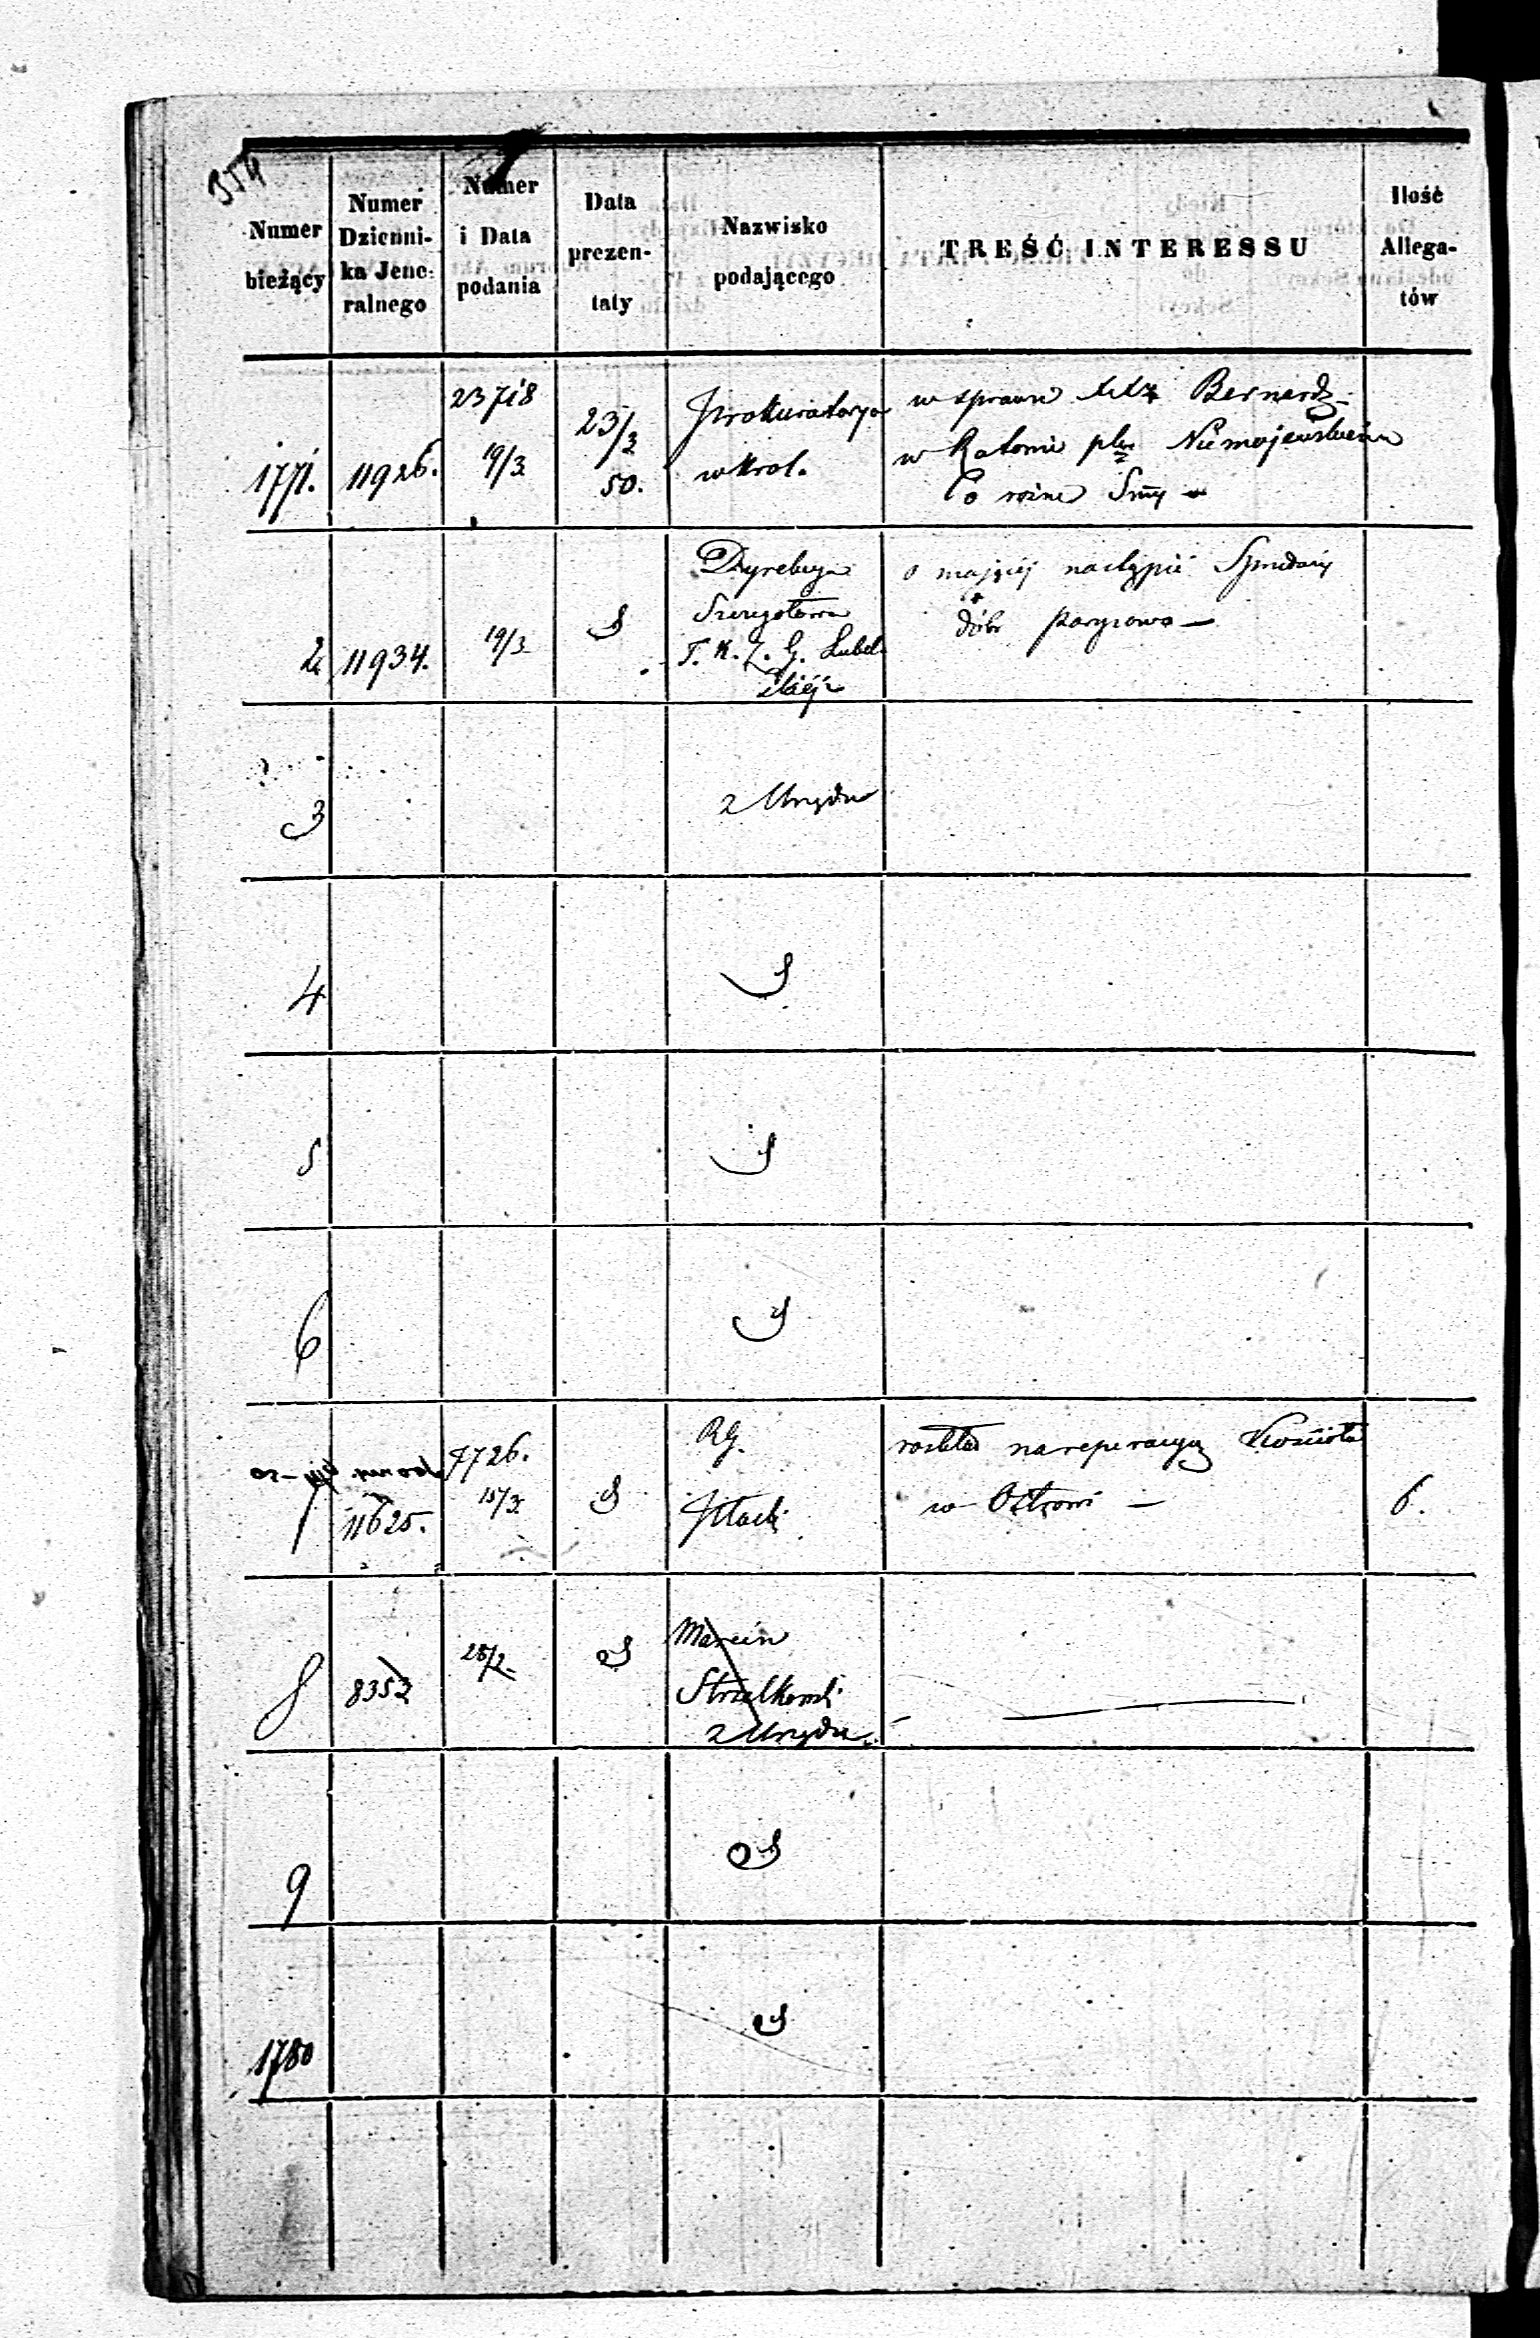 354
Numer bieżący
Numer Dzienni- ka Jene- ralnego
Numer i Data podania
Data prezen- taty
Nazwisko podającego
TREŚĆ INTERESSU
Ilość Allega- tów
1771. 11926. 23718 19/3 23/3 50.
Prokuratorya
w Król.
w sprawie Bernardz-
w Ratowie
o różne Summy
2 11934. 19/3
Dyrekcya
Szczegółowa
T. K. Z. G. Lubel-
skiej
o mającej nastąpić Sprzedaży
dóbr Parysowa —
3 z Urzędu
4
5
6
7 11625. 7726. 15/3
RG.
Płocki
rozkład na reperacyą Kościoła
w Ostrowi —
6.
8 8352 28/2
Marcin
Strzałkowski
z Urzędu
9
1780